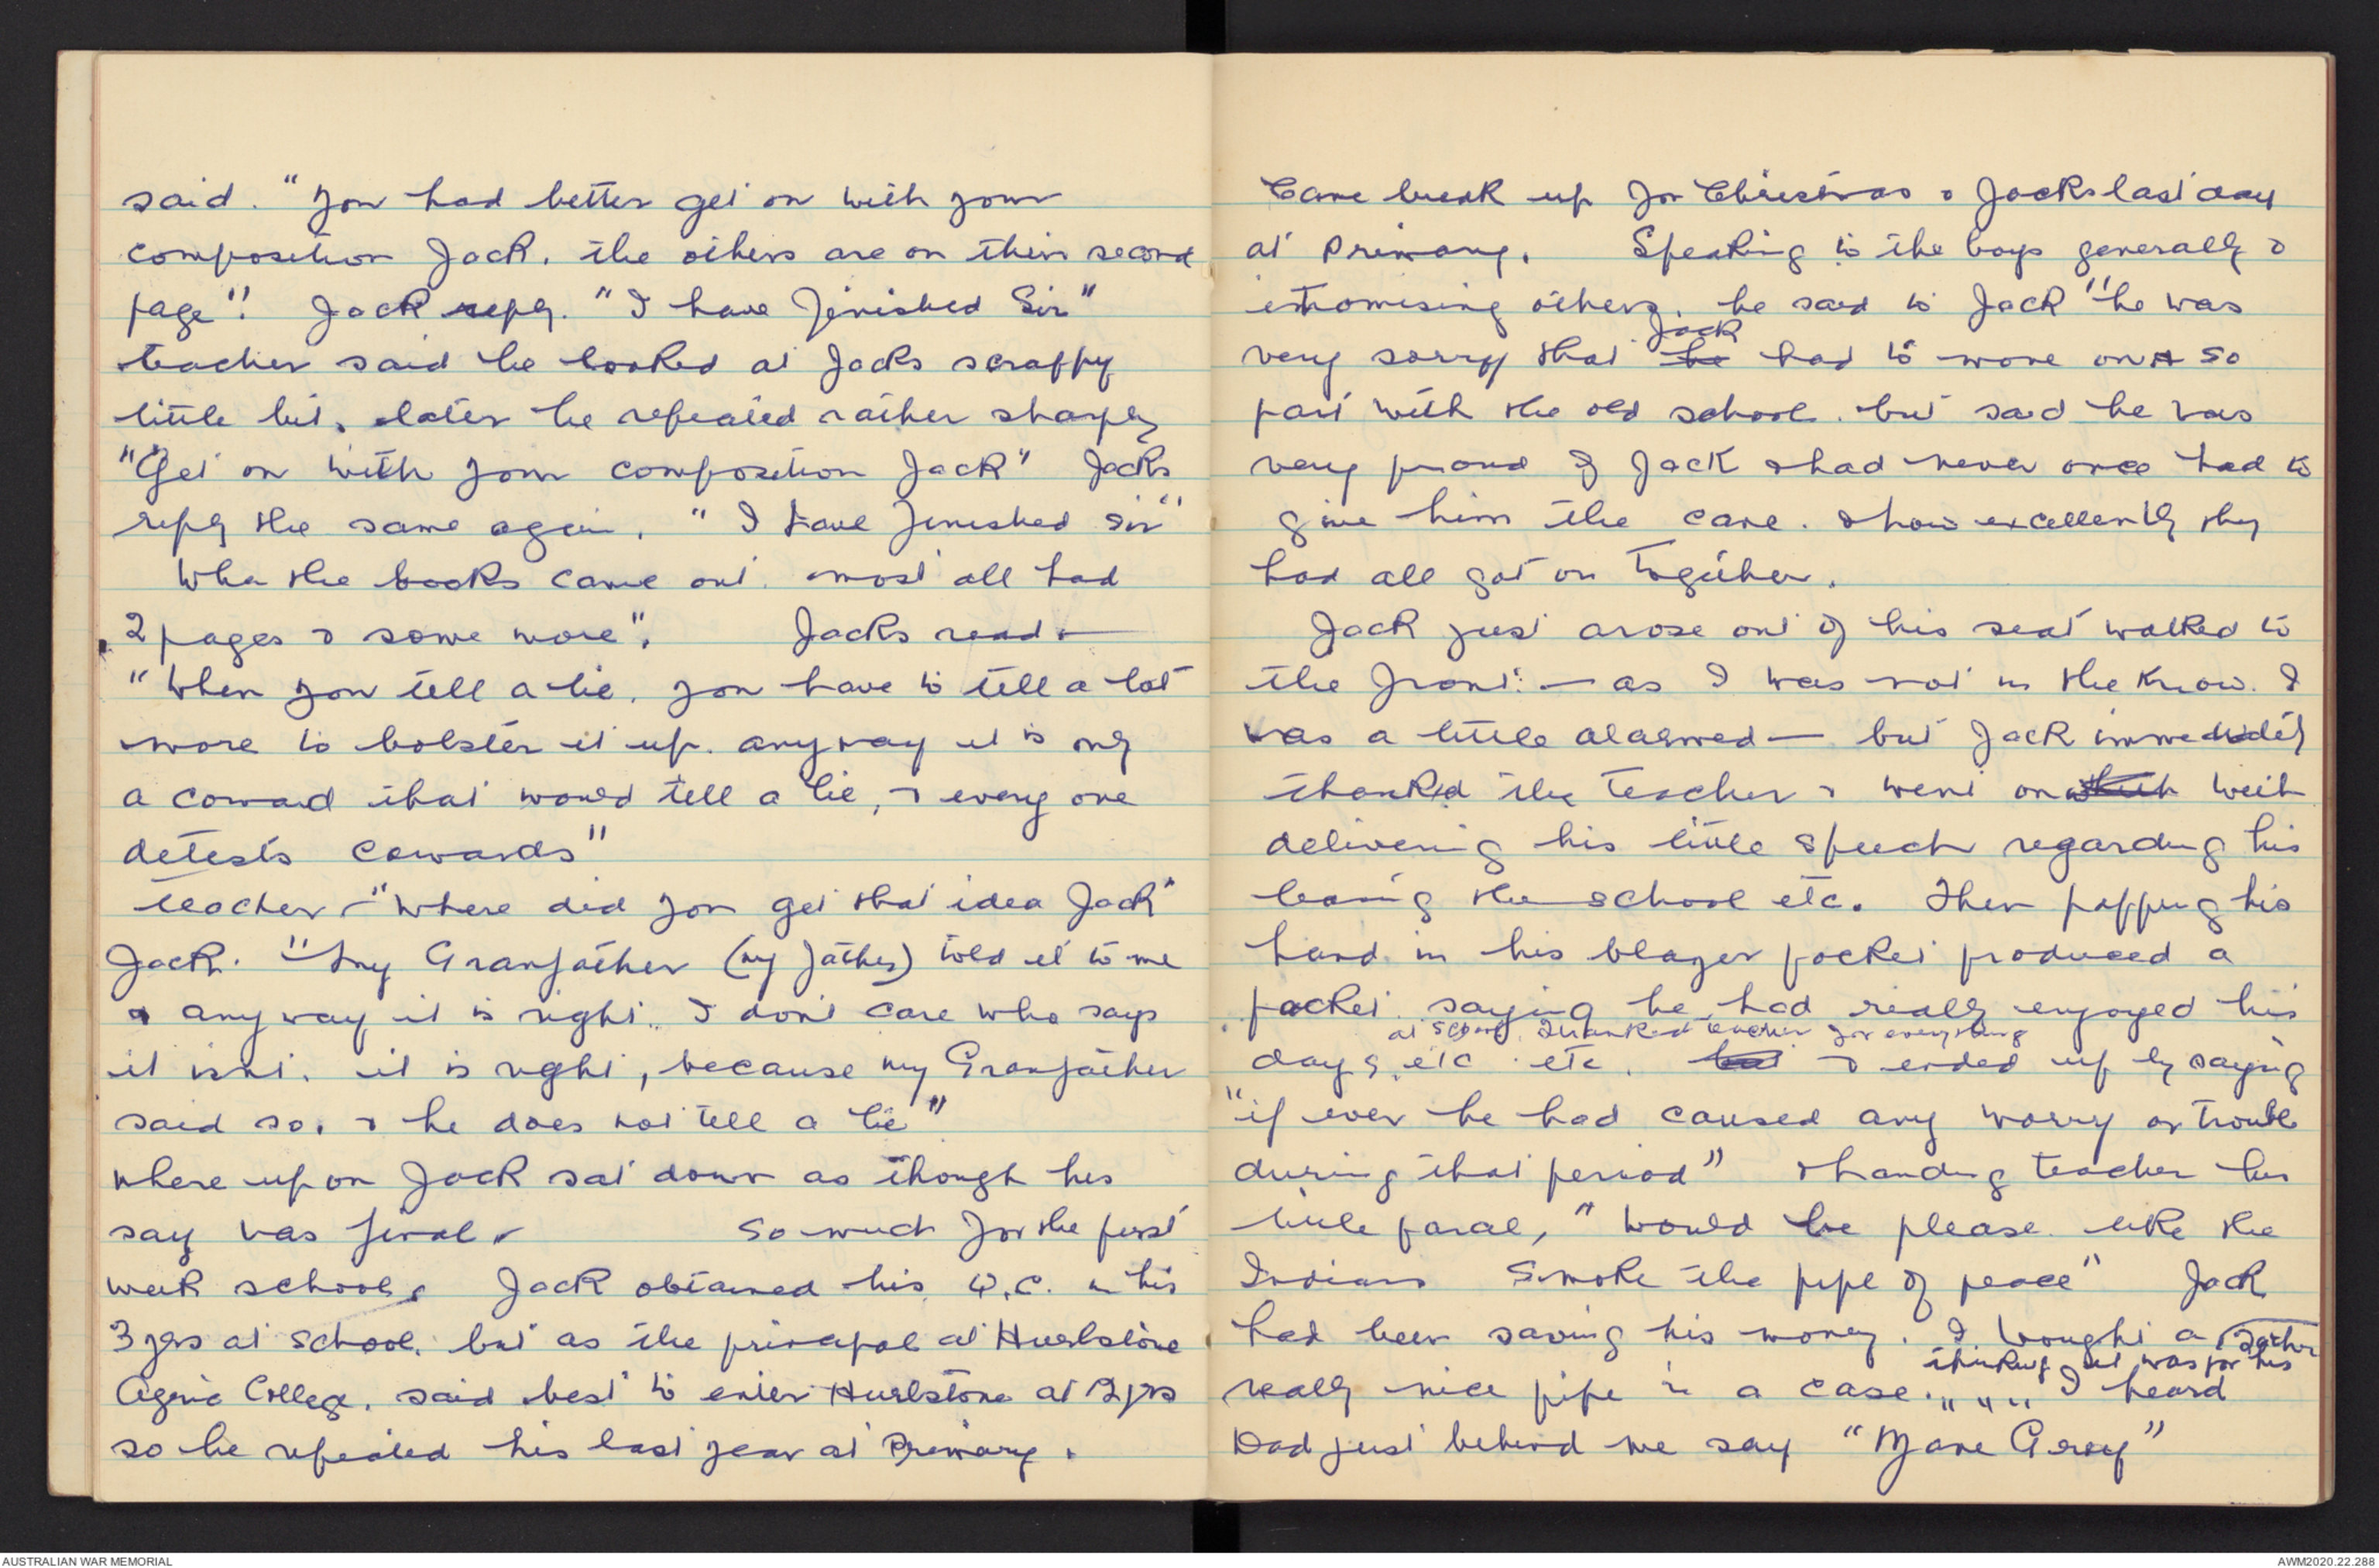 said. "You had better get on with your
composition Jack, the others are on their second
page"! Jack reply. "I have finished Sir"
teacher said he looked at Jacks scrappy
little bit, later he repeated rather sharply
"Get on with your composition Jack" Jacks
reply the same again, "I have finished Sir"
Whe the books came out. most all had
2 pages & some more". Jacks read. —
"When you tell a lie, you have to tell a lot
more to bolster it up. anyway it is only
a coward that would tell a lie, & every one
detests cowards"
teacher – "Where did you get that idea Jack"
Jack. "My Granfather (my father) told it to me
& any way it is right. I don't care who says
it isnt. it is right, because my Granfather
said so. & he does not tell a lie"
where upon Jack sat down as though his
say was final. So much for the first
week school. Jack obtained his Q.C. in his
3 yrs at school, but as the principal at Hurlstone
Agric College. said best to enter Hurlstone at 12 yrs
so he repeated his last year at Primary.
Came break up for Christmas & Jacks last day
at Primary. Speaking to the boys generally &
others, he said to Jack "he was
very sorry that he Jack had to move on & so
part with the old school. but said he was
very proud of Jack & had never once had to
give him the cane. & how excellently they
had all got on together.
Jack just arose out of his seat walked to
the front: – as I was not in the know. I
was a little alarmed — but Jack immediately
thanked the teacher & went on with
delivering his little speech regarding his
leaving the school etc. Then popping his
hand in his blazer pocket produced a
packet saying he had really enjoyed his
at school. Thanked teacher for everything
days, etc etc. & ended up by saying
"if ever he had caused any worry or trouble
during that period" & handing teacher his
little parcel, "Would he please like the
Indians Smoke the pipe of peace" Jack
had been saving his money. I bought a
thinking it was for his father
really nice pipe in a case. " " " I heard
Dad just behind me say